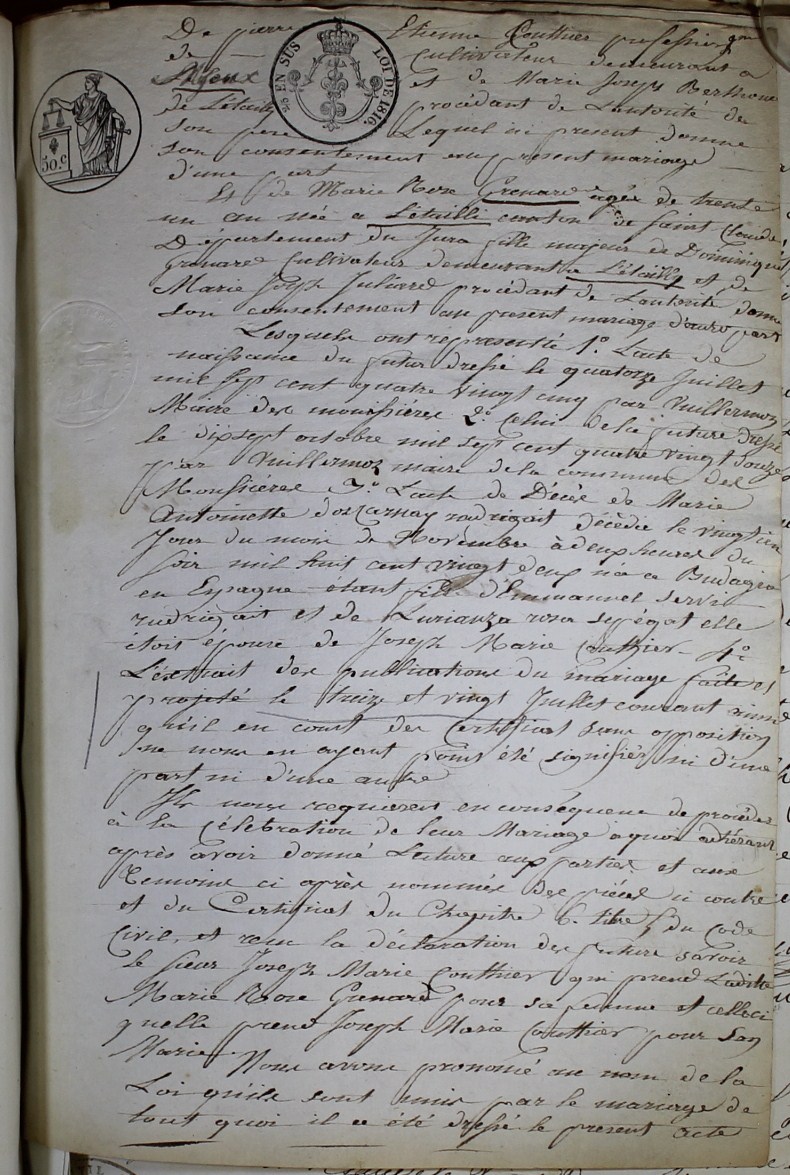 De pierre Etienne Gouthier profession
de cultivateur demeurant a
et de Marie Joseph
de Létaily procédant de Lautorité de
son père Lequel ici present donne
son consentement au present mariage
d'une part
Et de Marie Rose Grenard agée de trente
un an née a Létailli canton de Saint Claude
Département du Jura fille majeur de Dominique
Grenard Cultivateur demeurant a Létailly et de
Marie Joseph Juliard procédant de Lautorité donne
son consentement au present mariage d'autre part
Lesquels ont représenté 1o. Lacte de
naissance du futur dressé le quatorze Juillet
mil sept cent quatre vingt cinq par Vuillermoz
Maire des moussières 2o. Celui de la future dressé
le dixsept octobre mil sept cent quatre vingt douze
par Vuillermoz maire de la commune des
Moussières 3o. Lacte de Décès de Marie
Antoinette décédée le
Jour du mois de Novembre à deux heures du
soir mil huit cent vingt deux née a
en Espagne étant fille d'Emmanuel
et de rosa elle
étoit épouse de Joseph Marie Gouthier 4o
L'extrait des publications du mariage faites et
projeté le treize et vingt Juillet courant
qu'il en conste des Certificat sans opposition
ne nous en ayant point été signifiés ni d'une
part ni d'une autre
Ils nous requierent en conséquence de procéder
à la Célébration de leur Mariage a quoi adhérant
après avoir donné Lecture aux parties et aux
Temoins ci après nommés des pièces ci contre
et du Certificat du Chapitre 6. titre 5 du Code
Civil, et recu la déclaration des futurs savoir
le sieur Joseph Marie Gouthier qui prend Ladite
Marie Rose Grenard pour sa femme et celleci
quelle prend Joseph Marie Gouthier pour son
Marie Nous avons prononcé au nom de la
Loi qu'ils sont unis par le mariage de
tout quoi il a été dressé le present acte
EN SUS
LOI DE 1816.
50.c